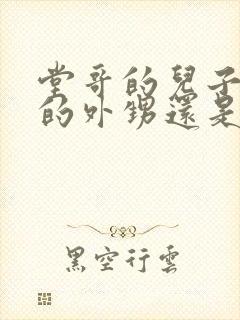 堂哥的兒子
的外甥還是
黑空行雲